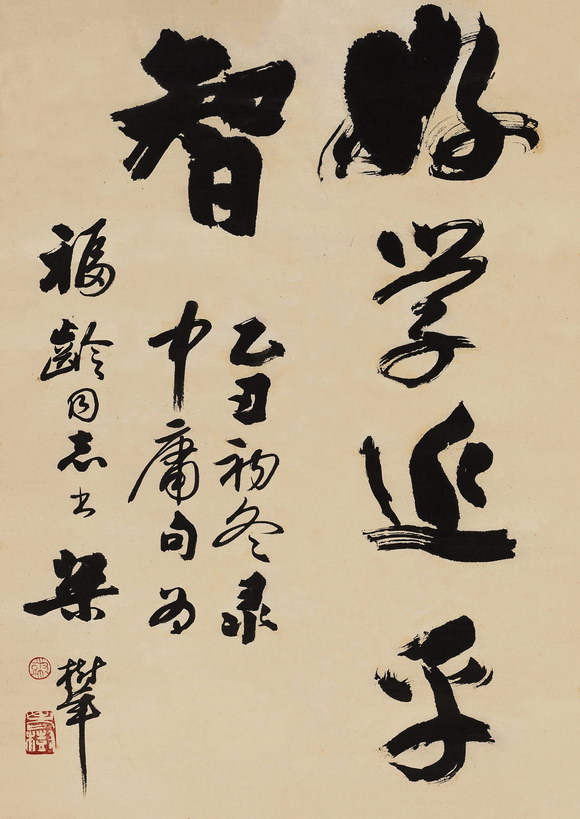 好学近乎
智
乙丑初冬录
中庸句为
福齡同志书 梁樹年